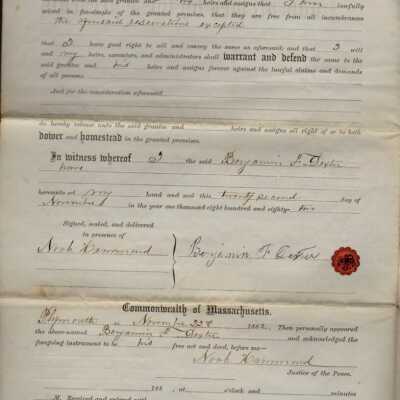 heirs and assigns that I am lawfully
seized in fee-simple of the granted premises, that they are free from all incumbrances
the aforesaid reservations excepted
that I have good right to sell and convey the same as aforesaid; and that I will
and my heirs, executors, and administrators shall warrant and defend the same to the
said grantee and his heirs and assigns forever against the lawful claims and demands
of all persons.
And for the consideration aforesaid
do hereby release unto the said grantee and heirs and assigns all right of or to both
dower and homestead in the granted premises.
In witness whereof I the said Benjamin F. Dexter
have
hereunto set my hand and this twenty second day of
November in the year one thousand eight hundred and eighty- two
Signed, sealed, and delivered
in presence of
Noah Hammond
Benjamin F Dexter
Commonwealth of Massachusetts.
Plymouth November 22d 1882. Then personally appeared
the above-named Benjamin F Dexter and acknowledged the
foregoing instrument to be his free act and deed, before me—
Noah Hammond
Justice of the Peace.
188 , at o'clock and minutes
M. Received and entered with